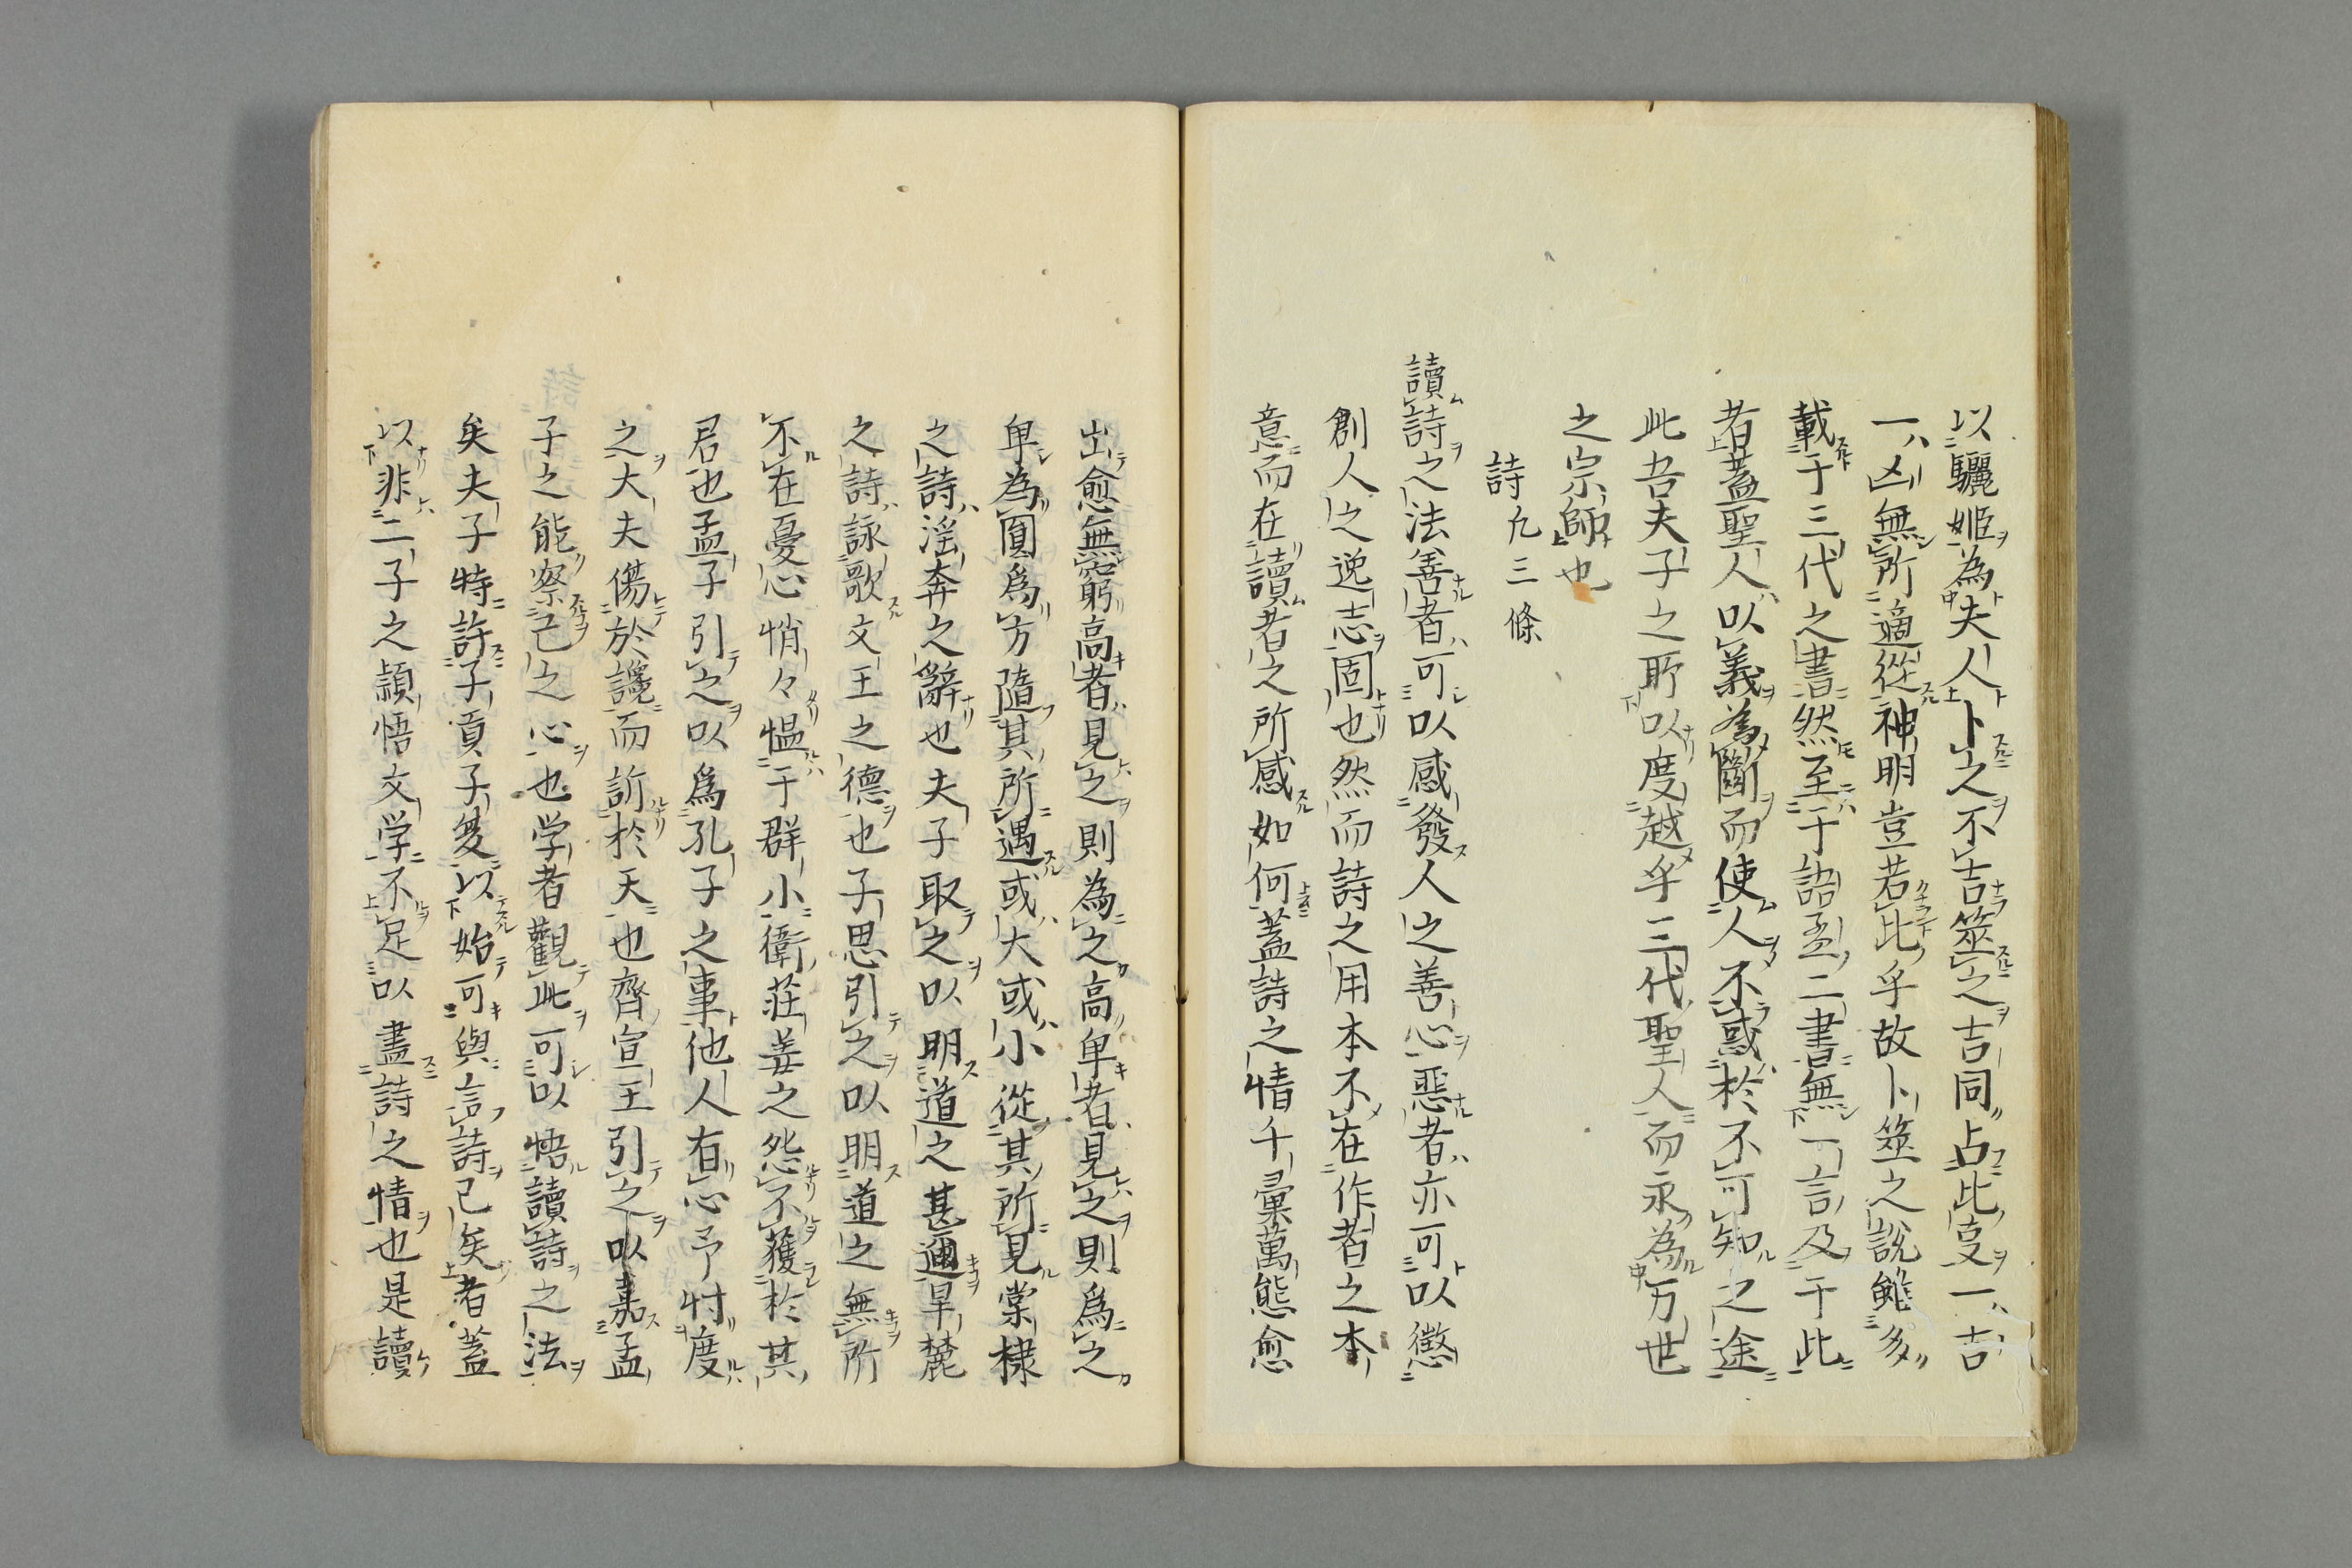 以驪姬為夫人卜之不吉筮之吉同占此㕝一吉
一凶無所適從神明豈若此乎故卜筮之說雖多
載于三代之書然至于語孟二書無一言及于此
者蓋聖人以義為斷而使人不惑於不可知之途
此吾夫子之所以度越乎三代聖人而永為万世
之宗師也
詩凡三條
讀詩之法善者可以感發人之善心惡者亦可以懲
創人之逸志固也然而詩之用本不在作者之本
意而在讀者之所感如何蓋詩之情千彙萬態愈
出愈無窮高者見之則為之高卑者見之則為之
卑為圓為方隨其所遇或大或小從其所見棠棣
之詩淫奔之辭也夫子取之以明道之甚邇旱麓
之詩詠歌文王之德也子思引之以明道之無所
不在憂心悄々慍于群小衛莊姜之怨不獲於其
君也孟子引之以為孔子之事他人有心予忖度
之大夫傷於讒而訴於天也齊宣王引之以嘉孟
子之能察己之心也学者觀此可以悟讀詩之法
矣夫子特許子貢子夏以始可與言詩已矣者蓋
以非二子之頴悟文学不足以盡詩之情也是讀